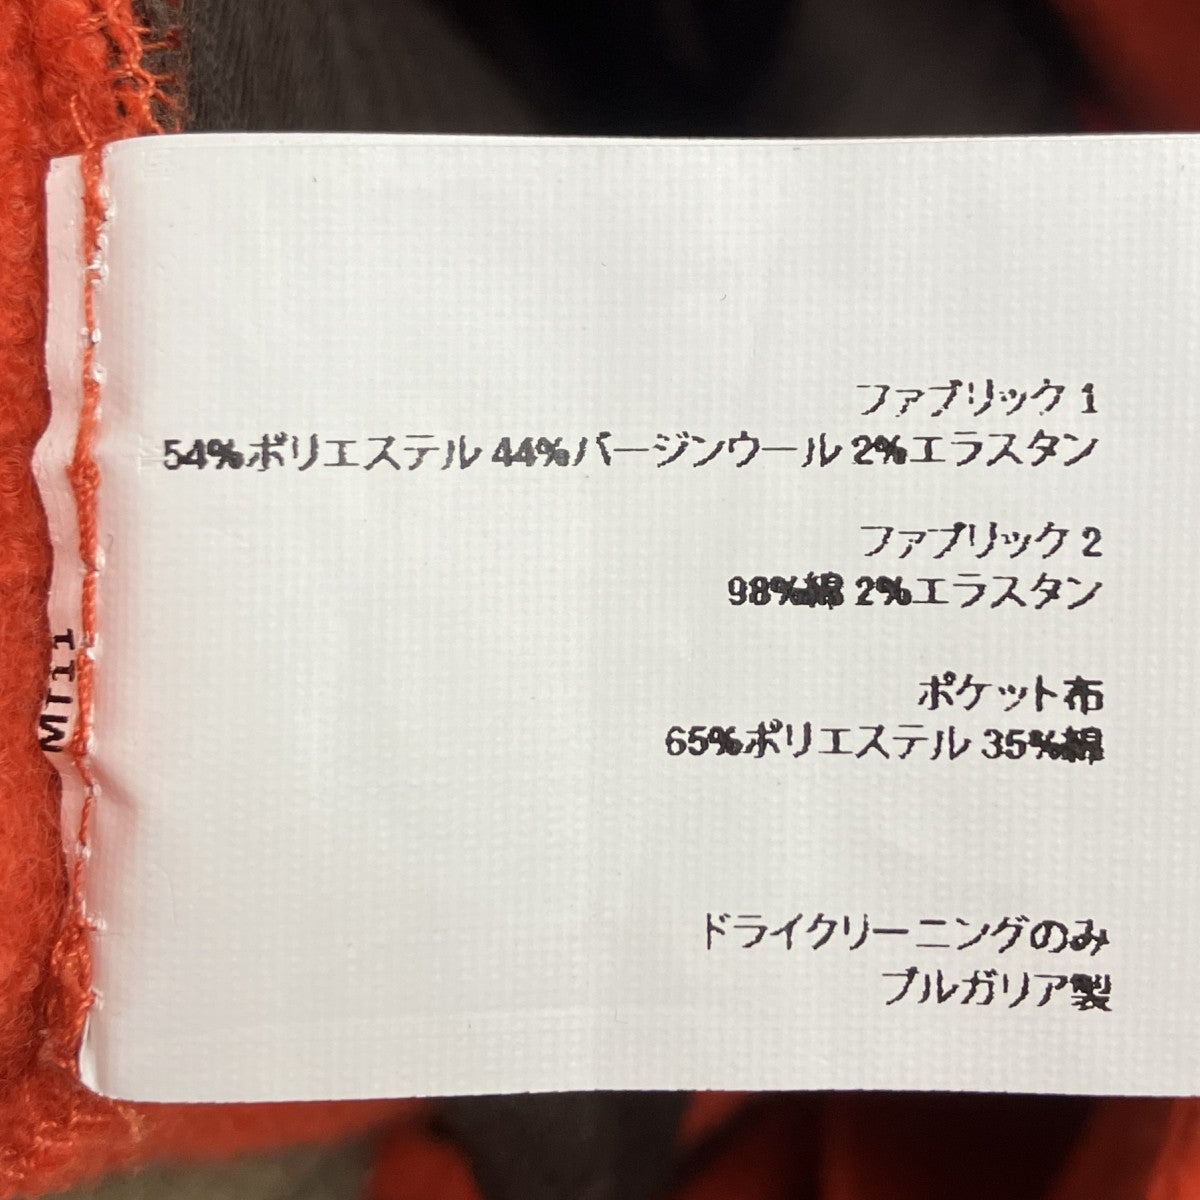 ファブリック 1
54%ポリエステル 44%バージンウール 2%エラスタン
ファブリック 2
98%綿 2%エラスタン
ポケット布
65%ポリエステル 35%綿
ドライクリーニングのみ
ブルガリア製
MT11